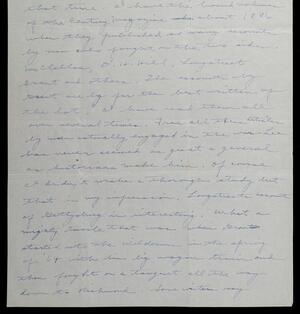 that time. I have the bound volumes
of the Century Magazine about 1886
when they published so many accounts
by men who fought on the two sides.
McClellan, D. H. Hill, Longstreet
Grant and others. The accounts by
Grant are by far the best written of
the lot. I have read them all
over several times. From all the articles
by men actually engaged in the war Lee
has never seemed so great a general
as historians make him. Of course
I didn't make a thorough study but
that is my impression. Longstreet's account
of Gettysburg is interesting. What a
mighty tussle that was when Grant
started into the Wilderness in the spring
of '64 with his big wagon train and
then fought on a tangent all the way
down to Richmond. Some writers say